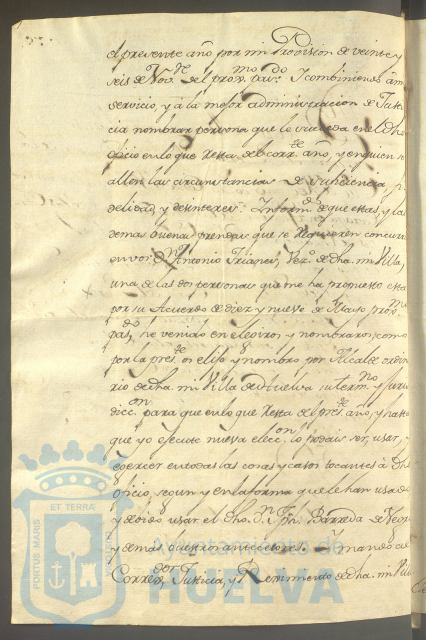 el presente año por mi Provision de veinte y
seis de Nov.re del prox.mo pas.do Y combiniendo à mi
servicio, y à la mejor administracion de Justi
cia nombrar persona que lo suceda en el dho
oficio en lo que resta de el corr.te año, y en quien se
allen las circunstancias de suficiencia, fi
delidad, y desinteres: Inform.do de que estas, y las
demas buenas prendas que se requieren concurren
en vos D.n Antonio Trianes, Vez.o de dha. mi Villa,
una de las dos personas que me ha propuesto esta
por su Acuerdo de diez y nueve de Marzo prox.mo
pas.do, he venido en elexiros, y nombraros; como
por la pres.te os elijo, y nombro por Alcalde ordina
rio de dha. mi Villa de Huelva su term.no y juris
dicc.on para que en lo que resta del pres.te año, y hasta
que yo ejecute nueva elecc.on lo podais ser, usar, y
exercer en todas las cosas y casos tocantes à dho
oficio, segun, y en la forma que le han usado
y debido usar el dho. D.n Jph. Barreda de Vega
y demas vuestros antecesores. Y mando al
Correg.dor Justicia, y Regimiento de dha. mi Villa
PORTUS MARIS
ET TERRAE
CUSTODIA
Ayuntamiento de
HUELVA